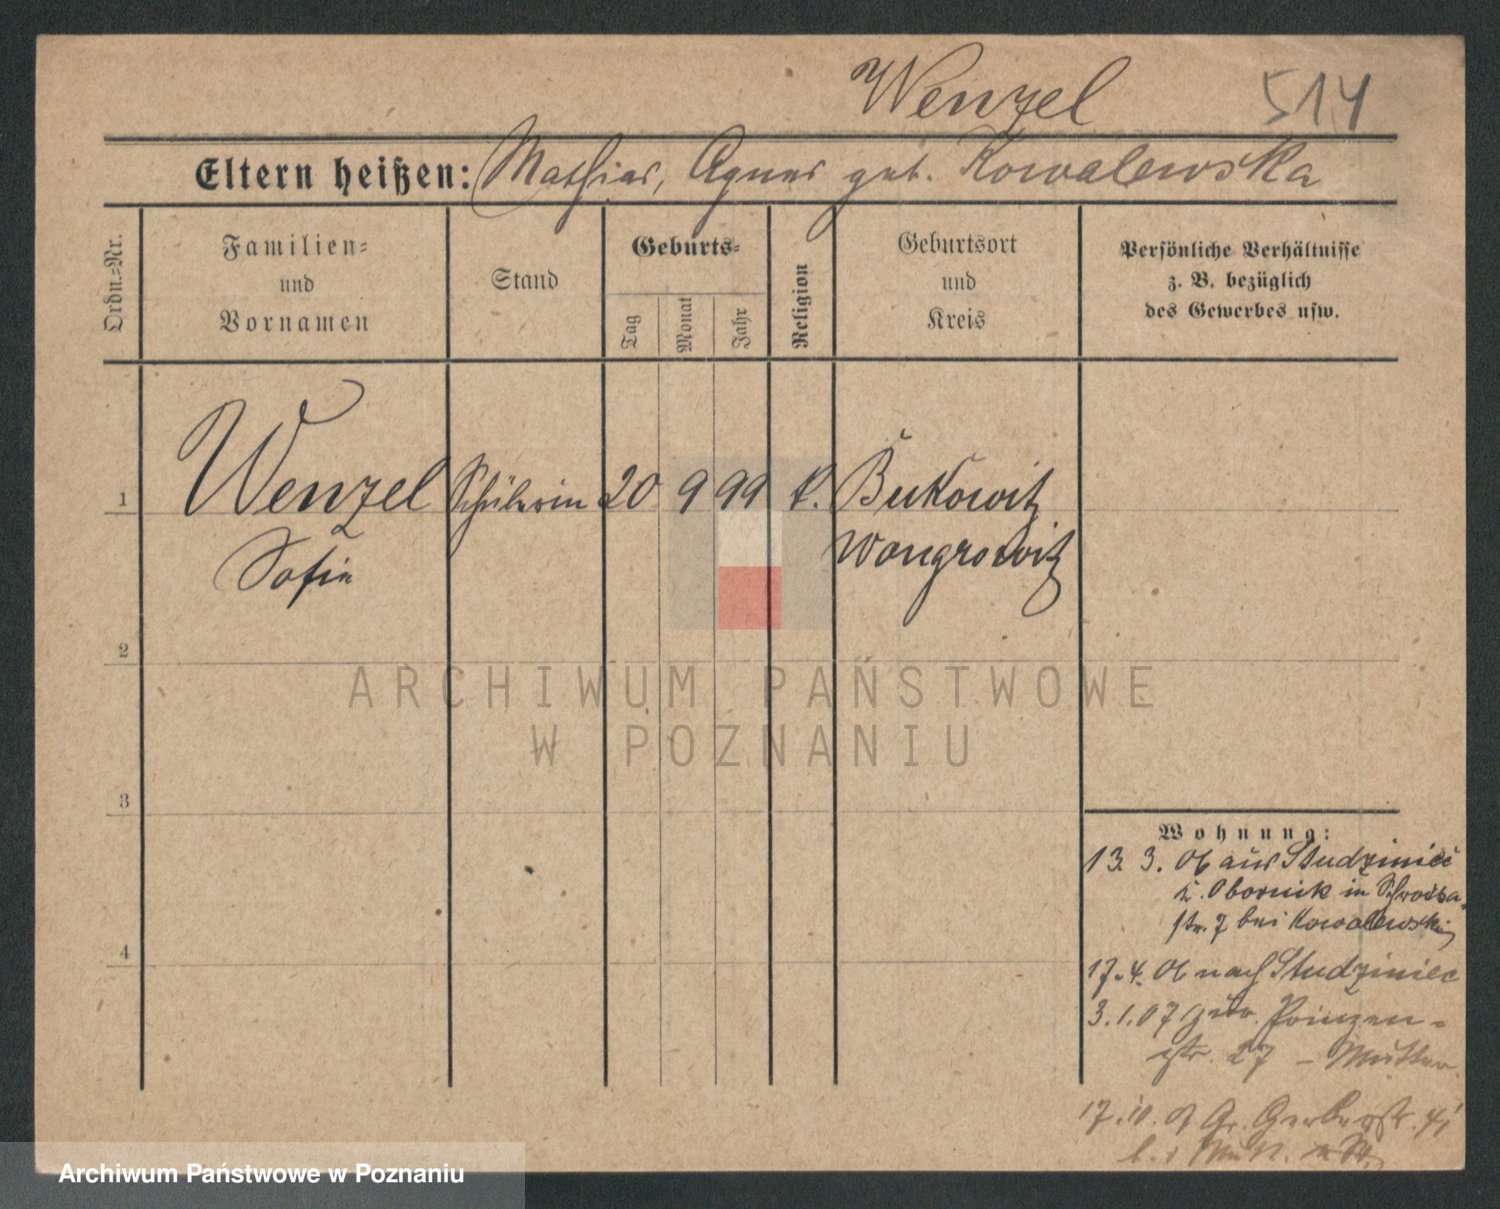 Wenzel 514
Eltern heißen: Mathias, Agnes geb. Kowalewska
Ordn.-Nr.
Familien-
und
Vornamen
Stand
Geburts-
Tag
Monat
Jahr
Religion
Geburtsort
und
Kreis
Persönliche Verhältnisse
z. B. bezüglich
des Gewerbes usw.
1 Wenzel Schülerin 20 9 99 k. Bukowitz
Sofie Wongrowitz
2
3
4
ARCHIWUM PAŃSTWOWE
W POZNANIU
Wohnung:
13. 3. 06 aus Studziniec
k. Obornik in Schrodka
str. 7 bei Kowalewski
17. 4. 06 nach Studziniec
3. 1. 07 zur. Prinzen-
str. 27 - Mutter
17. 10. 07 Gr. Gerberstr. 41
b. d. Mutt.
Archiwum Państwowe w Poznaniu